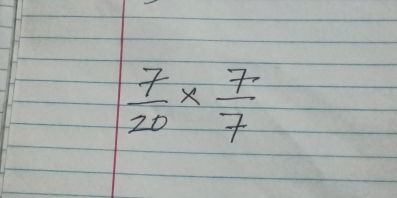 7/20 × 7/7